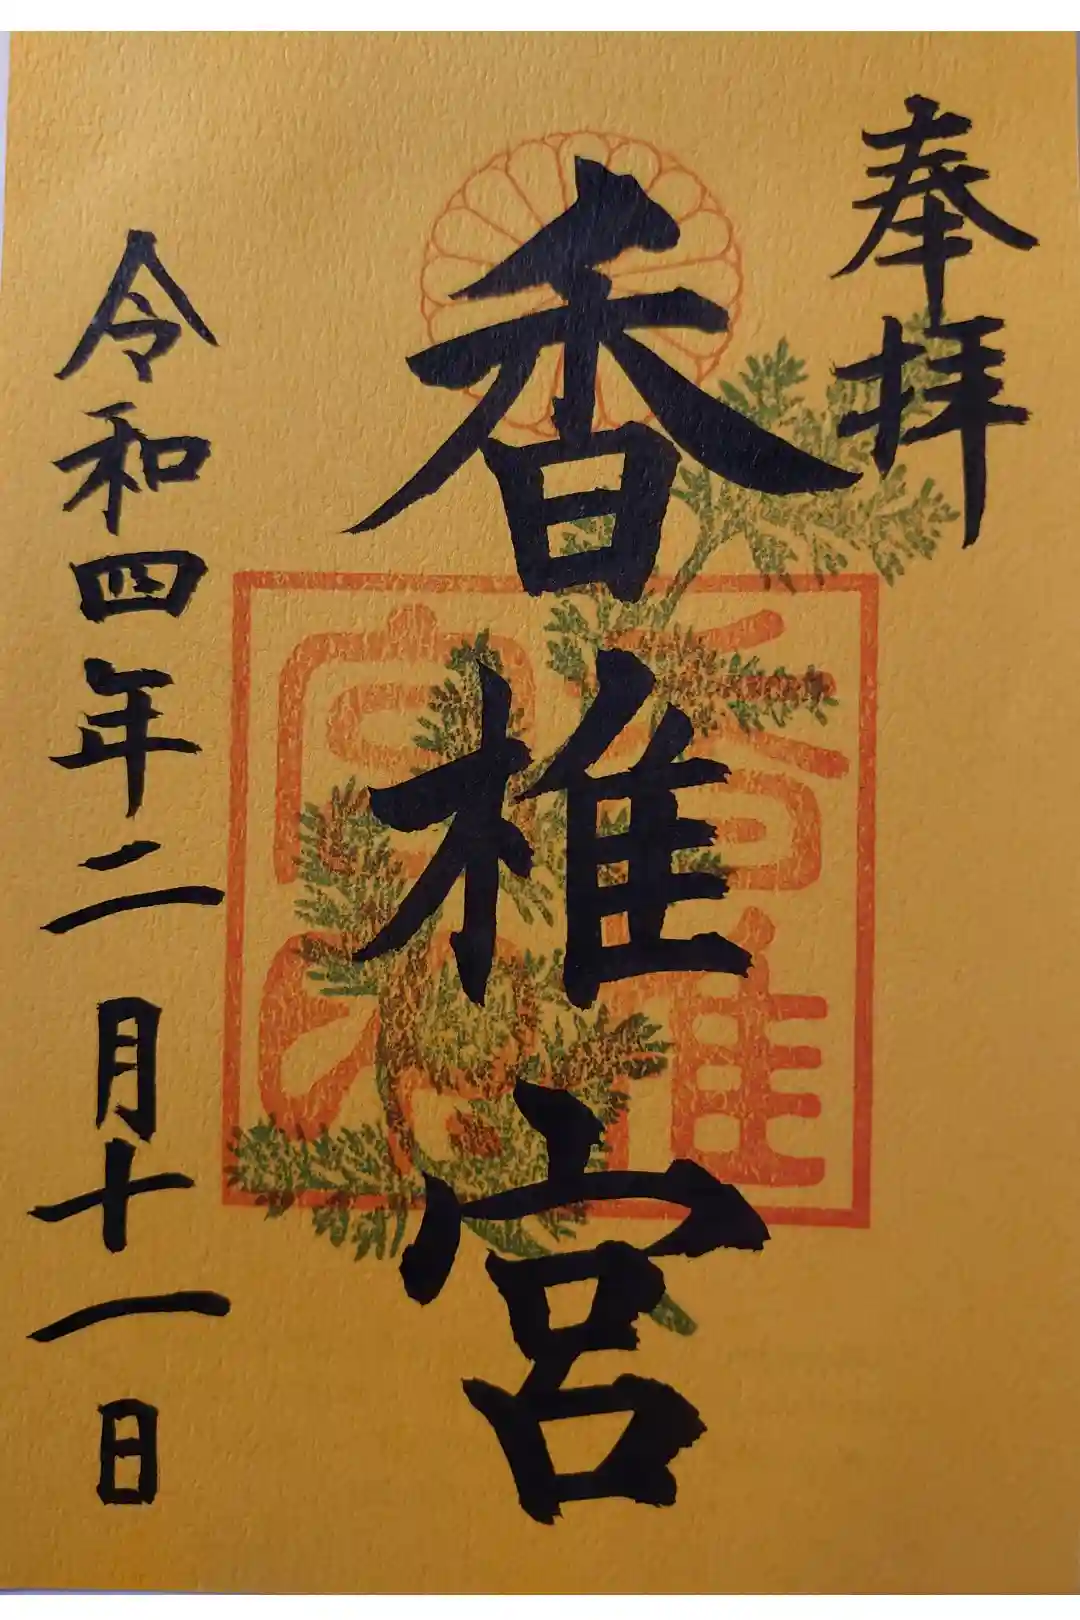 奉拝
香椎宮
令和四年二月十一日